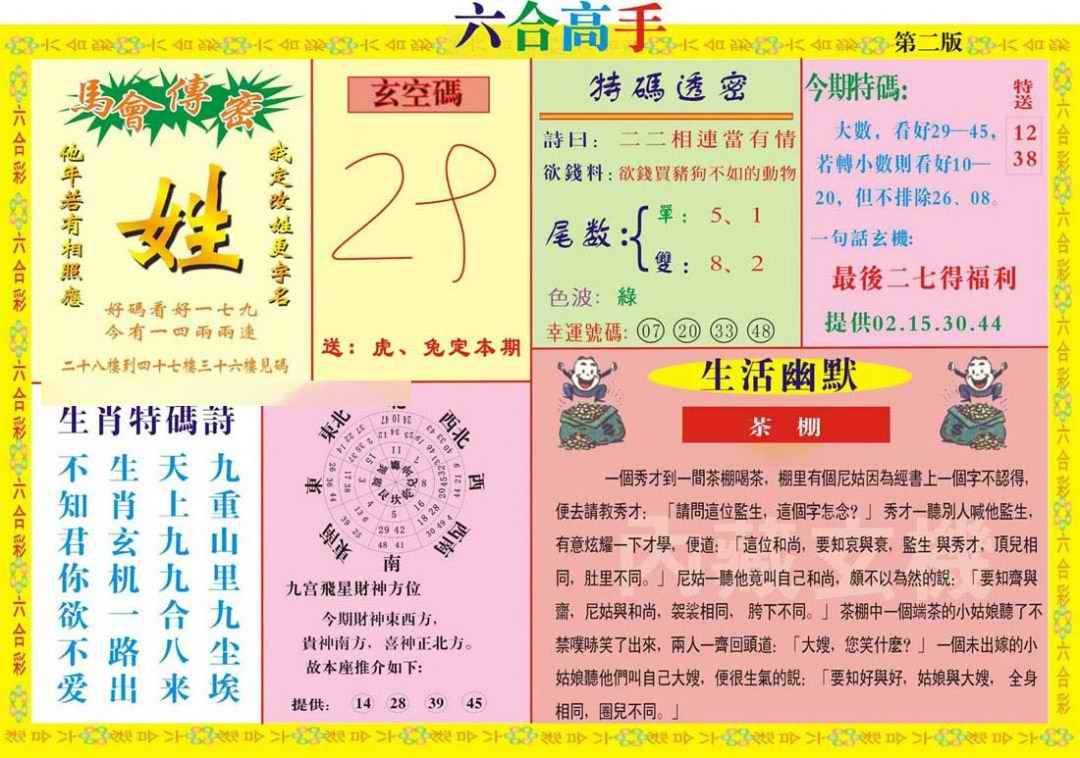 六合高手
第二版
馬會傳密
我定改姓更字名
姓
他年若有相照應
好碼看好一七九
今有一四兩兩連
二十八樓到四十七樓三十六樓見碼
玄空碼
29
送：虎、兔定本期
特碼透密
詩曰：二二相連當有情
欲錢料：欲錢買豬狗不如的動物
尾数：
單：5、1
雙：8、2
色波：綠
幸運號碼：07 20 33 48
今期特碼:
特送
12
38
大數，看好29—45，
若轉小數則看好10—
20，但不排除26、08。
一句話玄機:
最後二七得福利
提供02.15.30.44
生肖特碼詩
九重山里九尘埃
天上九九合八来
生肖玄机一路出
不知君你欲不爱
東北
西北
東
西
東南
西南
南
九宮飛星財神方位
今期財神東西方，
貴神南方，喜神正北方。
故本座推介如下:
提供: 14 28 39 45
生活幽默
茶棚
一個秀才到一間茶棚喝茶，棚里有個尼姑因為經書上一個字不認得，
便去請教秀才：「請問這位監生，這個字怎念？」秀才一聽別人喊他監生，
有意炫耀一下才學，便道：「這位和尚，要知哀與衰，監生與秀才，頂兒相
同，肚里不同。」尼姑一聽他竟叫自己和尚，頗不以為然的說：「要知齊與
齋，尼姑與和尚，袈裟相同，胯下不同。」茶棚中一個端茶的小姑娘聽了不
禁噗哧笑了出來，兩人一齊回頭道：「大嫂，您笑什麼？」一個未出嫁的小
姑娘聽他們叫自己大嫂，便很生氣的說：「要知好與好，姑娘與大嫂，全身
相同，圈兒不同。」
内藏玄機